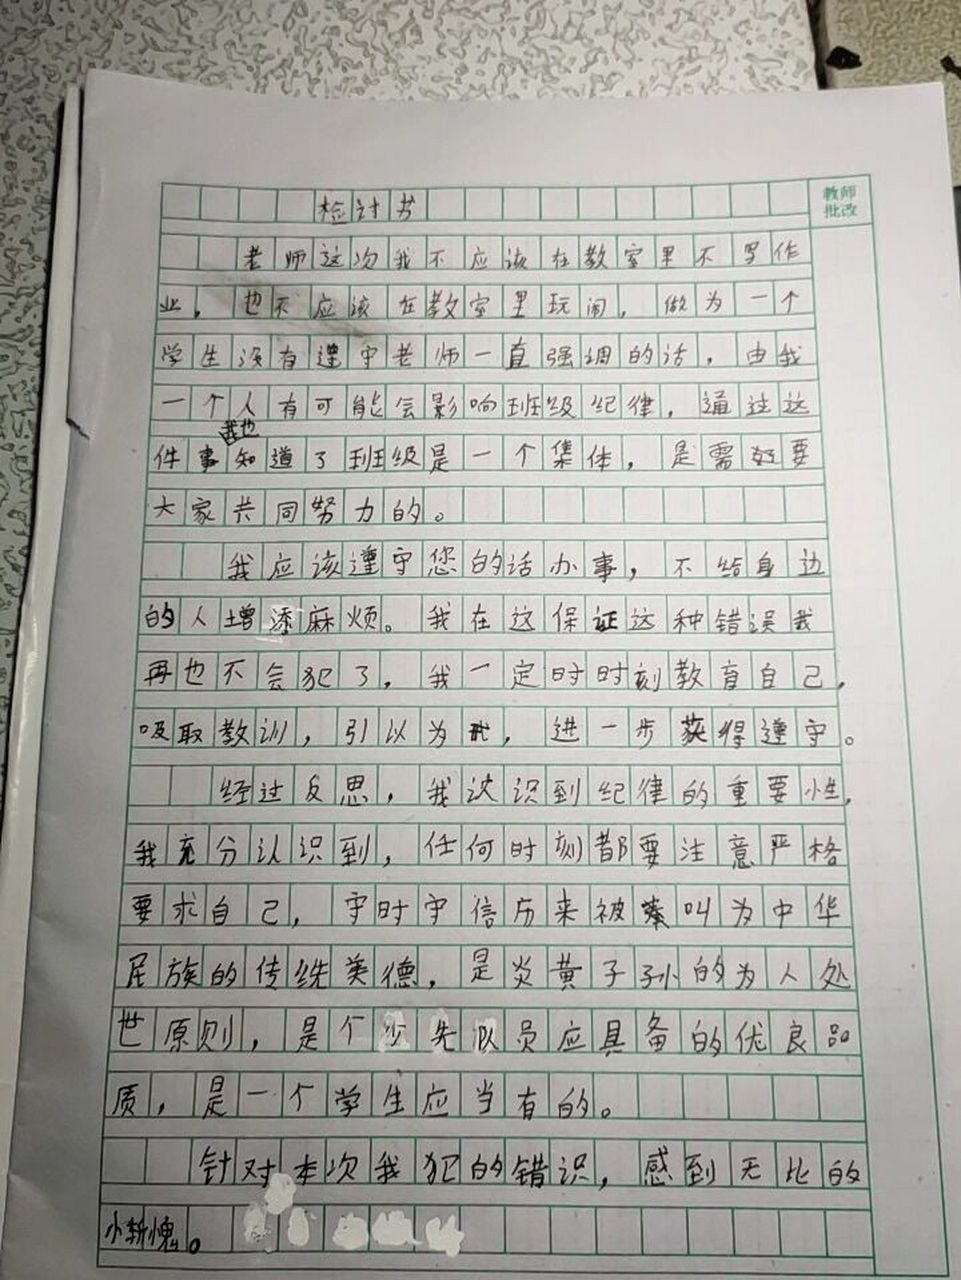 检讨书
教师
批改
老师这次我不应该在教室里不写作
业，也不应该在教室里玩闹，做为一个
学生没有遵守老师一直强调的话，由我
一个人有可能会影响班级纪律，通过这
我也
件事知道了班级是一个集体，是需要
大家共同努力的。
我应该遵守您的话办事，不给身边
的人增添麻烦。我在这保证这种错误我
再也不会犯了，我一定时时刻教育自己，
吸取教训，引以为戒，进一步获得遵守。
经过反思，我达识到纪律的重要性，
我充分认识到，任何时刻都要注意严格
要求自己，守时守信历来被叫为中华
民族的传统美德，是炎黄子孙的为人处
世原则，是个少先队员应具备的优良品
质，是一个学生应当有的。
针对本次我犯的错识，感到无比的
惭愧。